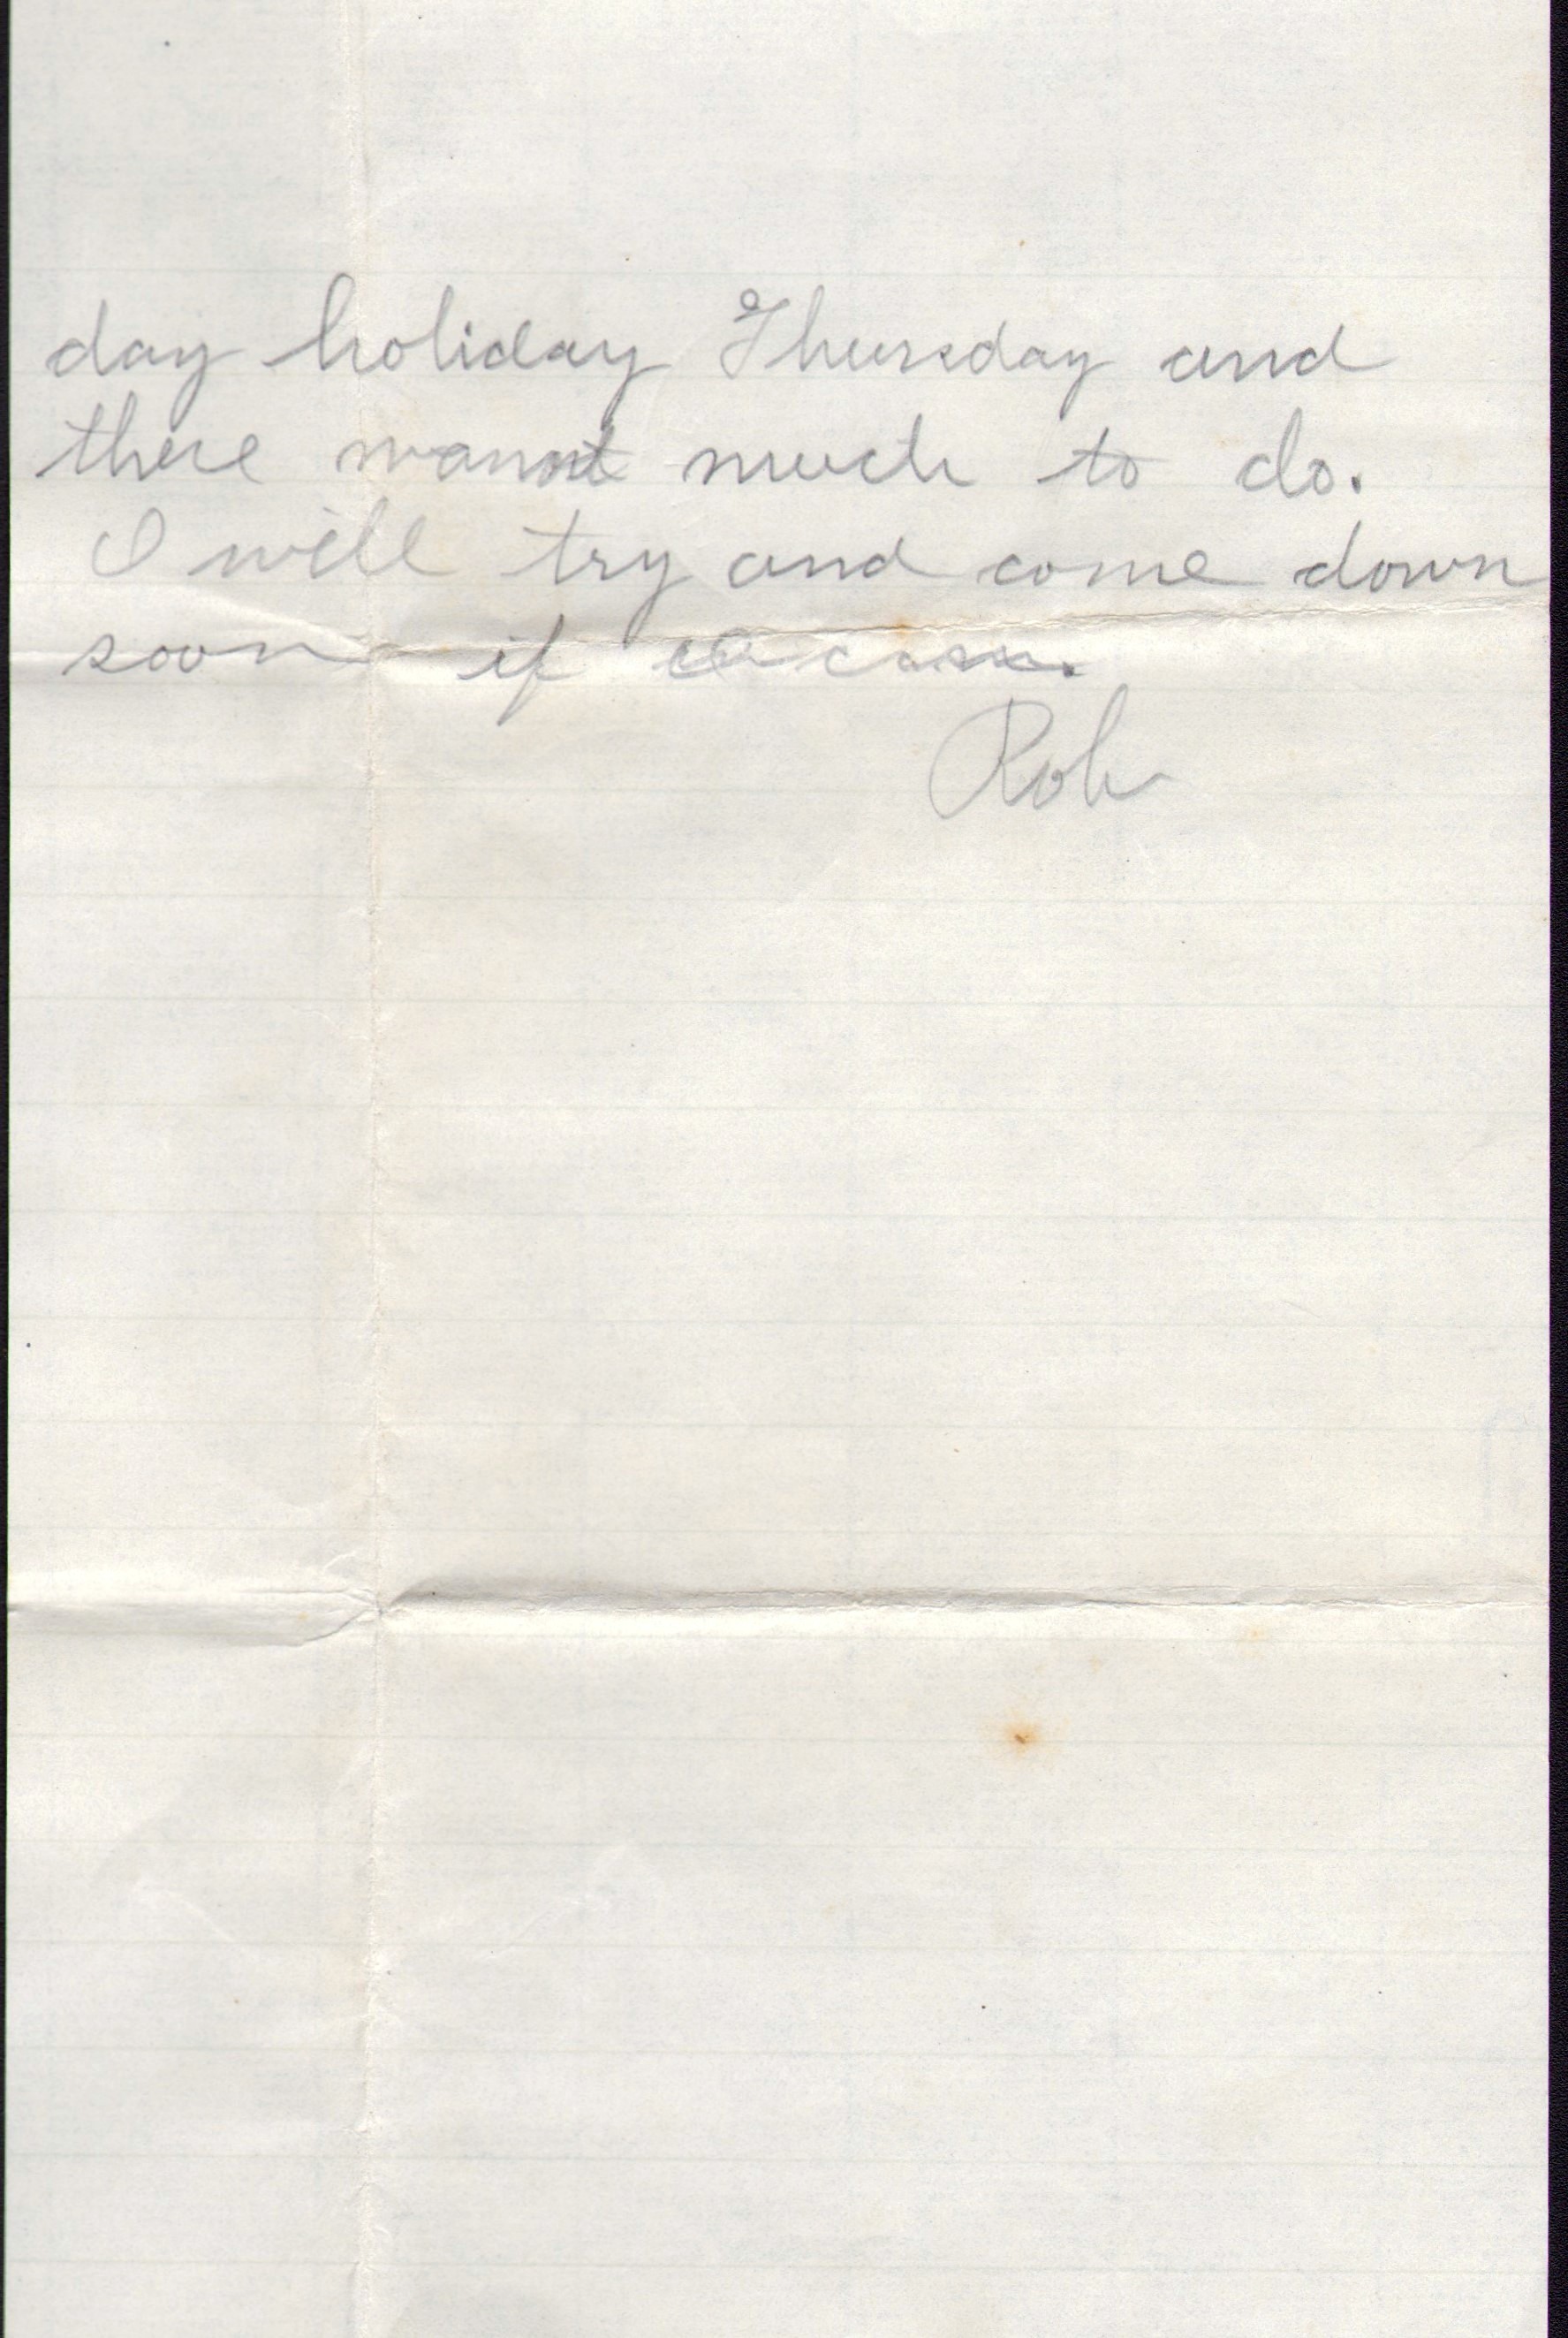 day holiday Thursday and
there much to do.
I will try and come down
soon if can.
Rob